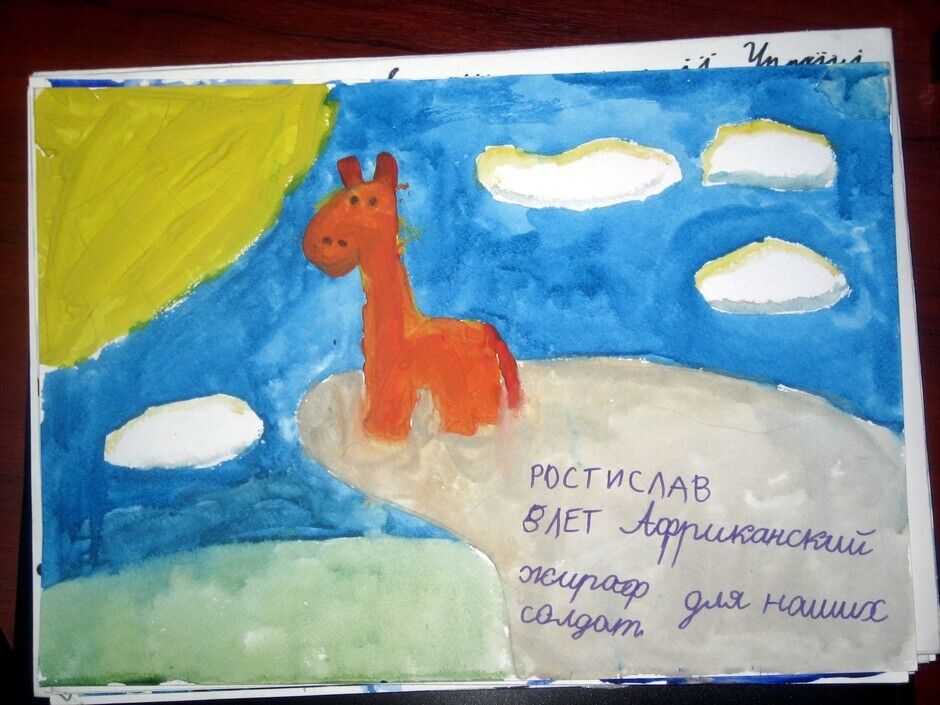 України
РОСТИСЛАВ
8ЛЕТ Африканский
жираф для наших
солдат.